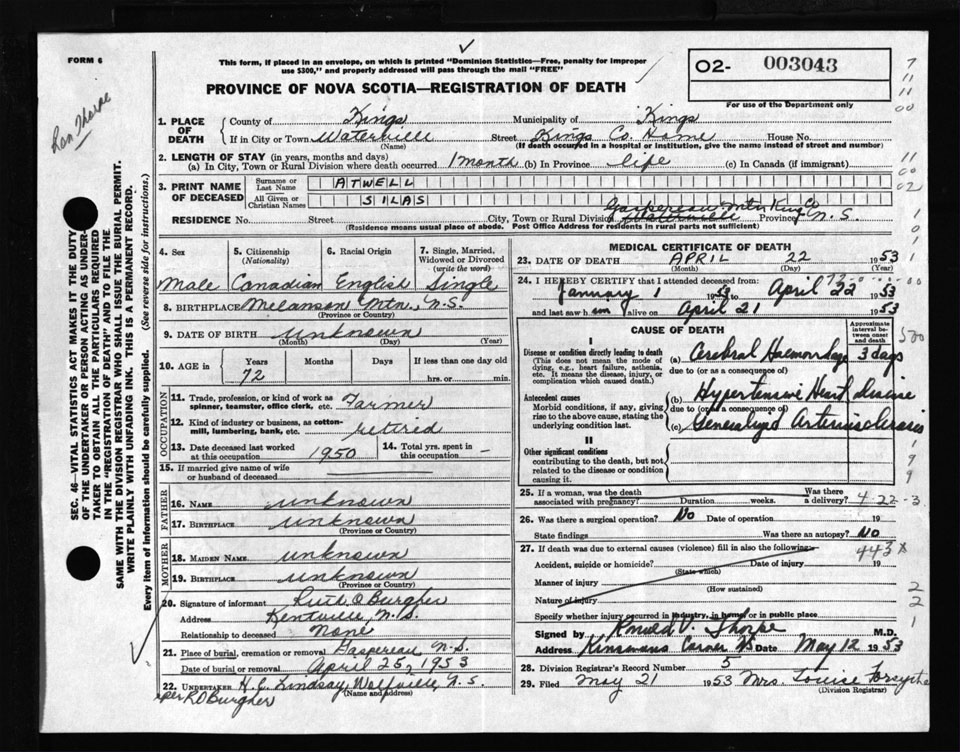 FORM 6
This form, if placed in an envelope, on which is printed "Dominion Statistics—Free, penalty for improper
use $300," and properly addressed will pass through the mail "FREE"
PROVINCE OF NOVA SCOTIA—REGISTRATION OF DEATH
O2- 003043
For use of the Department only
SEC. 46—VITAL STATISTICS ACT MAKES IT THE DUTY
OF THE UNDERTAKER OR PERSON ACTING AS UNDER-
TAKER TO OBTAIN ALL THE PARTICULARS REQUIRED
IN THE "REGISTRATION OF DEATH" AND TO FILE THE
SAME WITH THE DIVISION REGISTRAR WHO SHALL ISSUE THE BURIAL PERMIT.
WRITE PLAINLY WITH UNFADING INK. THIS IS A PERMANENT RECORD.
Every item of information should be carefully supplied. (See reverse side for instructions.)
1. PLACE OF DEATH
County of Kings Municipality of Kings
If in City or Town Waterville Street Kings Co. Home House No.
(Name) (If death occurred in a hospital or institution, give the name instead of street and number)
2. LENGTH OF STAY (in years, months and days)
(a) In City, Town or Rural Division where death occurred 1 month (b) In Province life (c) In Canada (if immigrant)
3. PRINT NAME OF DECEASED
Surname or Last Name ATWELL
All Given or Christian Names SILAS
Gaspereau Mtn King Co
RESIDENCE No. Street City, Town or Rural Division Waterville Province N.S.
(Residence means usual place of abode. Post Office Address for residents in rural parts not sufficient)
4. Sex 5. Citizenship (Nationality) 6. Racial Origin 7. Single, Married, Widowed or Divorced (write the word)
Male Canadian English Single
8. BIRTHPLACE Melanson Mtn, N.S.
(Province or Country)
9. DATE OF BIRTH unknown
(Month) (Day) (Year)
10. AGE in Years Months Days If less than one day old
72 hrs. or min.
OCCUPATION
11. Trade, profession, or kind of work as
spinner, teamster, office clerk, etc. Farmer
12. Kind of industry or business, as cotton-
mill, lumbering, bank, etc. retired
13. Date deceased last worked at this occupation 1950 14. Total yrs. spent in this occupation -
15. If married give name of wife
or husband of deceased
FATHER
16. NAME unknown
17. BIRTHPLACE unknown
(Province or Country)
MOTHER
18. MAIDEN NAME unknown
19. BIRTHPLACE unknown
(Province or Country)
20. Signature of informant Ruth O Burgher
Address Kentville, N.S.
Relationship to deceased None
21. Place of burial, cremation or removal Gaspereau N.S.
Date of burial or removal April 25, 1953
22. UNDERTAKER H.C. Lindsay, Wolfville, N.S.
(Name and address)
per RO Burgher
MEDICAL CERTIFICATE OF DEATH
23. DATE OF DEATH APRIL 22 1953
(Month) (Day) (Year)
24. I HEREBY CERTIFY that I attended deceased from:
January 1 1953 to April 22 1953
and last saw him alive on April 21 1953
CAUSE OF DEATH
Approximate interval between onset and death
I
Disease or condition directly leading to death
(This does not mean the mode of
dying, e.g., heart failure, asthenia,
etc. It means the disease, injury, or
complication which caused death.)
(a) Cerebral Haemorrhage 3 days
due to (or as a consequence of)
Antecedent causes
Morbid conditions, if any, giving
rise to the above cause, stating the
underlying condition last.
(b) Hypertensive Heart disease
due to (or as a consequence of)
(c) Generalized Arteriosclerosis
II
Other significant conditions
contributing to the death, but not
related to the disease or condition
causing it.
25. If a woman, was the death associated with pregnancy? Duration weeks. Was there a delivery?
4-22-3
26. Was there a surgical operation? No Date of operation 19
State findings Was there an autopsy? No
27. If death was due to external causes (violence) fill in also the following:
443 x
Accident, suicide or homicide? Date of injury 19
(State which)
Manner of injury
(How sustained)
Nature of injury
Specify whether injury occurred in industry, in home or in public place
Signed by Thorpe M.D.
Address Kinsmans Corner NS Date May 12 1953
28. Division Registrar's Record Number 5
29. Filed May 21 1953 Mrs. Louise Forsythe
(Division Registrar)